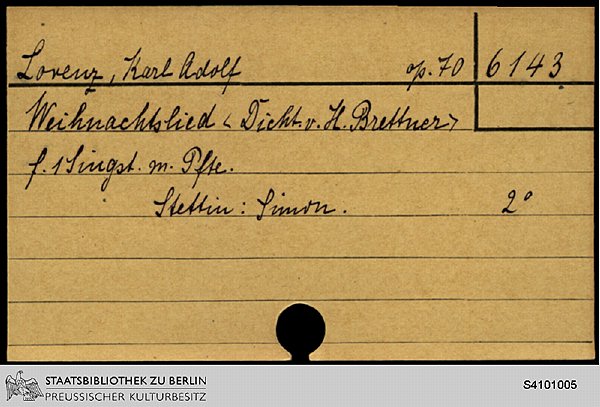 Lorenz, Karl Adolf op. 70 6143
Weihnachtslied < Dicht. v. H. Brettner >
f. 1 Singst. m. Pfte.
Stettin: Simon. 2°
STAATSBIBLIOTHEK ZU BERLIN
PREUSSISCHER KULTURBESITZ
S4101005